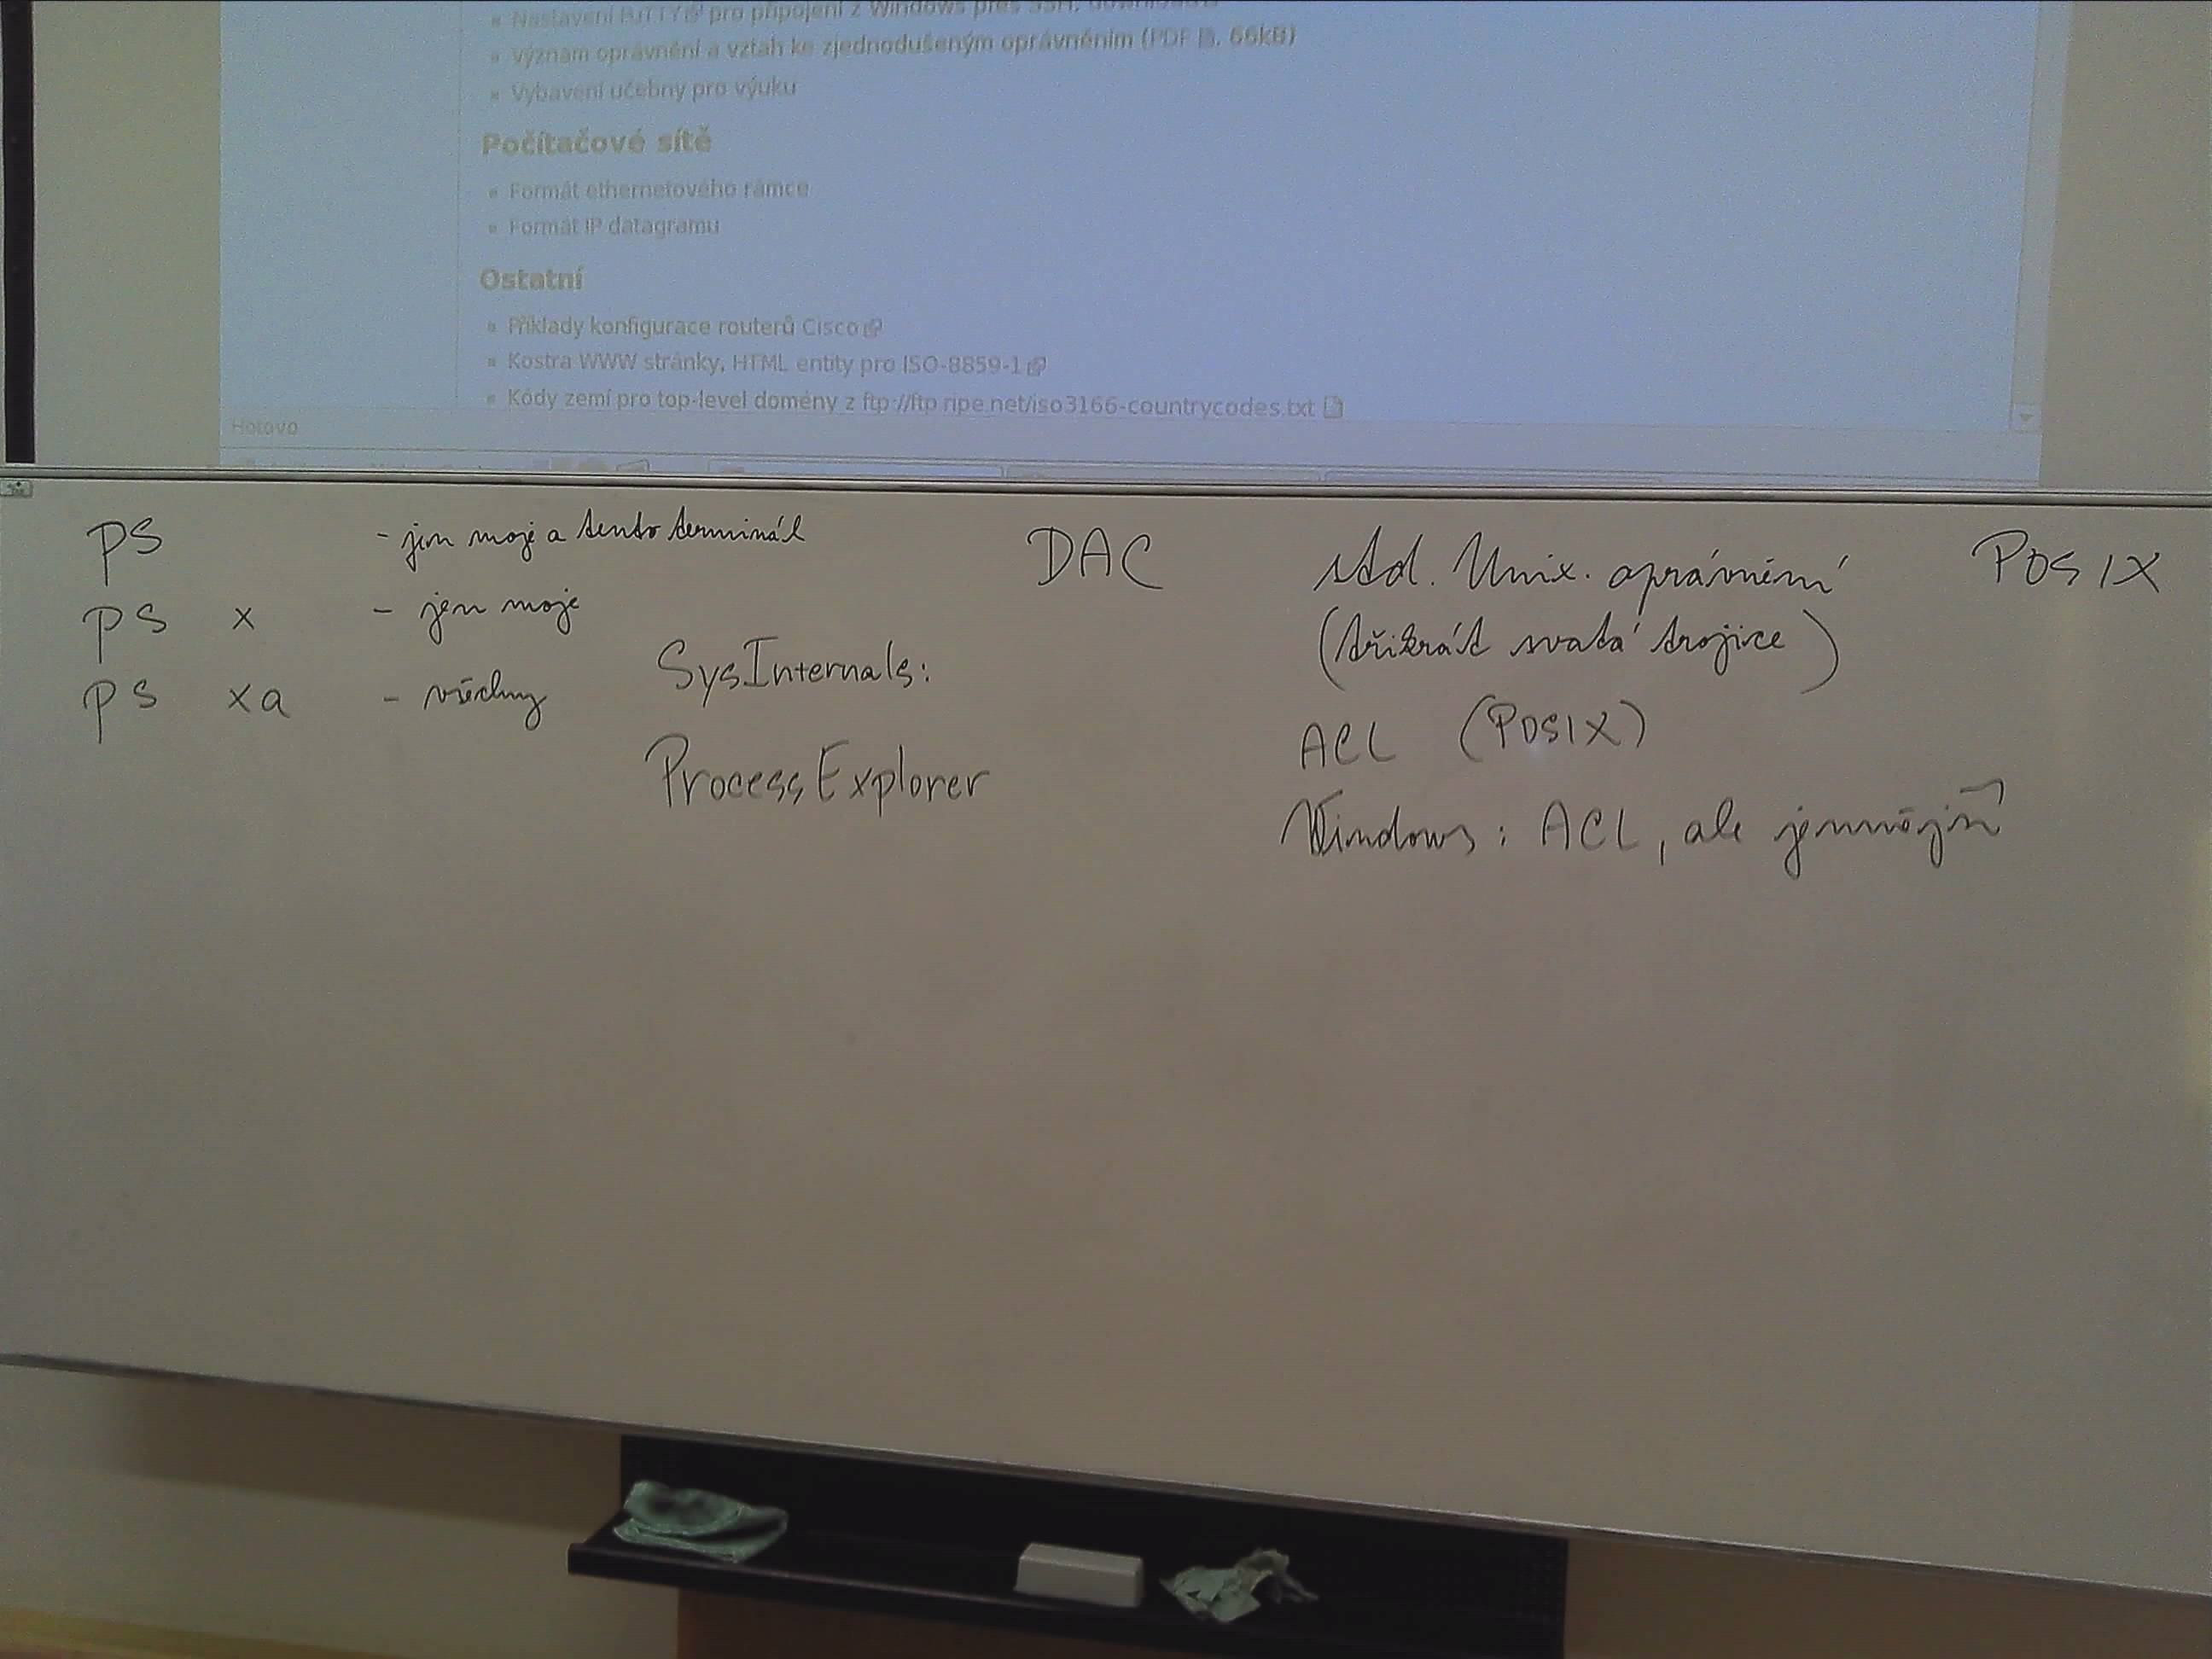 Nastavení PuTTY pro připojení z Windows přes SSH, download
význam oprávnění a vztah ke zjednodušeným oprávněním (PDF, 66kB)
Vybavení učebny pro výuku
Počítačové sítě
Formát ethernetového rámce
Formát IP datagramu
Ostatní
Příklady konfigurace routerů Cisco
Kostra WWW stránky, HTML entity pro ISO-8859-1
Kódy zemí pro top-level domény z ftp://ftp.ripe.net/iso3166-countrycodes.txt
Hotovo
ps - jen moje a tento terminál
ps x - jen moje
ps xa - všechny
SysInternals:
ProcessExplorer
DAC
std. Unix. oprávnění
(třikrát svatá trojice)
ACL (POSIX)
Windows: ACL, ale jemnější
POSIX